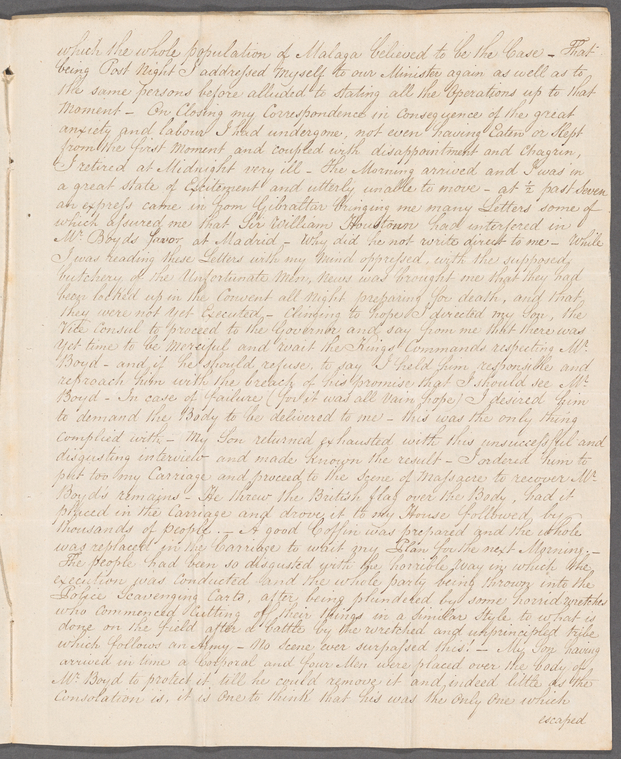 which the whole population of Malaga believed to be the Case – That
being Post Night I addressed myself to our Minister again as well as to
the same persons before alluded to stating all the Operations up to that
Moment – On Closing my Correspondence in Consequence of the great
anxiety and labour I had undergone, not even having Eaten or Slept
from the first Moment and coupled with disappointment and Chagrin,
I retired at Midnight very ill – The Morning arrived and I was in
a great State of Excitement and utterly unable to move – at ½ past Seven
an express came in from Gibraltar bringing me many Letters some of
which assured me that Sir William Houstoun had interfered in
Mr. Boyds favor, at Madrid – Why did he not write direct to me – While
I was reading these Letters with my Mind oppressed, with the supposed
butchery of the Unfortunate Men, News was brought me that they had
been locked up in the Convent all Night preparing for death, and that
they were not yet Executed – Clinging to hope I directed my Son, the
Vice Consul to proceed to the Governor and say from me that there was
yet time to be Merciful and wait the Kings Commands respecting Mr.
Boyd – and if he should refuse, to say I held him responsible and
reproach him with the breach of his promise that I should see Mr.
Boyd – In case of failure (for it was all vain hope) I desired him
to demand the Body to be delivered to me – this was the only thing
complied with – My Son returned exhausted with this unsuccessful and
disgusting interview and made known the result – I ordered him to
put too my Carriage and proceed to the Scene of Massacre to recover Mr.
Boyd's remains – He threw the British flag over the Body, had it
placed in the Carriage and drove it to my House followed by
thousands of people. – A good Coffin was prepared and the whole
was replaced in the Carriage to wait my Plan for the next Morning. –
The people had been so disgusted with the horrible way in which the
execution was conducted and the whole party being thrown into the
Police Scavenging Carts, after being plundered by some horrid wretches
who commenced Cutting of their things in a Similar Style to what is
done on the field after a battle by the wretched and unprincipled tribe
which follows an Army – No Scene ever surpassed this! – My Son having
arrived in time a Corporal and four Men were placed over the body of
Mr. Boyd to protect it, till he could remove it and indeed little as the
Consolation is, it is one to think that his was the Only One which
escaped